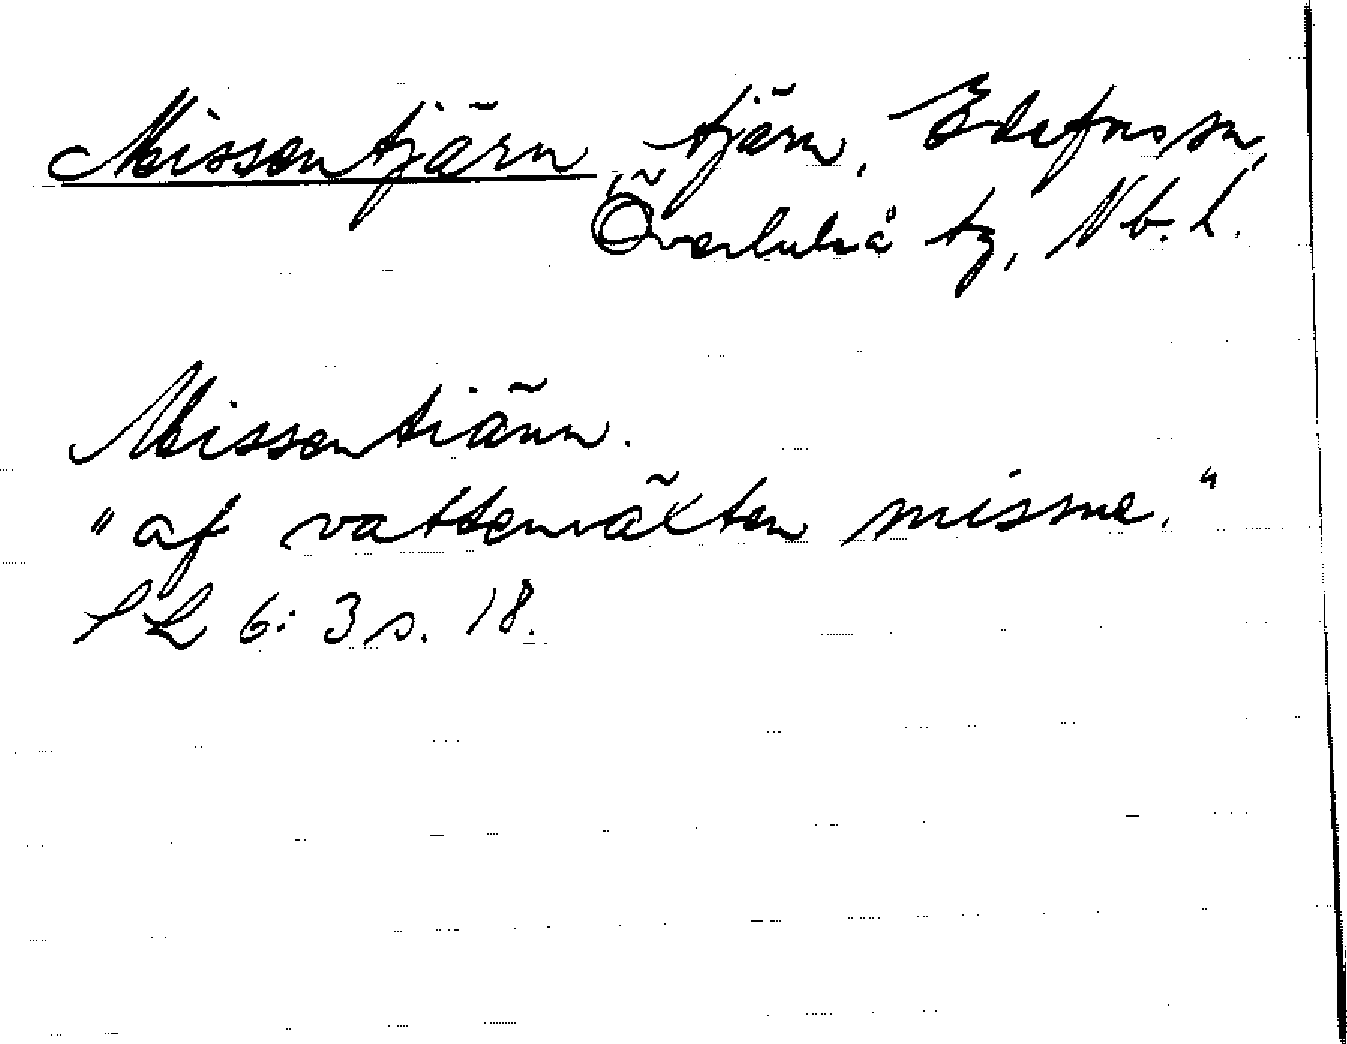 Missentjärn, tjärn, Edefors sn,
Överluleå tg, Nb. l.
Missentiänn.
"af vattenväxten missne."
SL 6:3 s. 18.